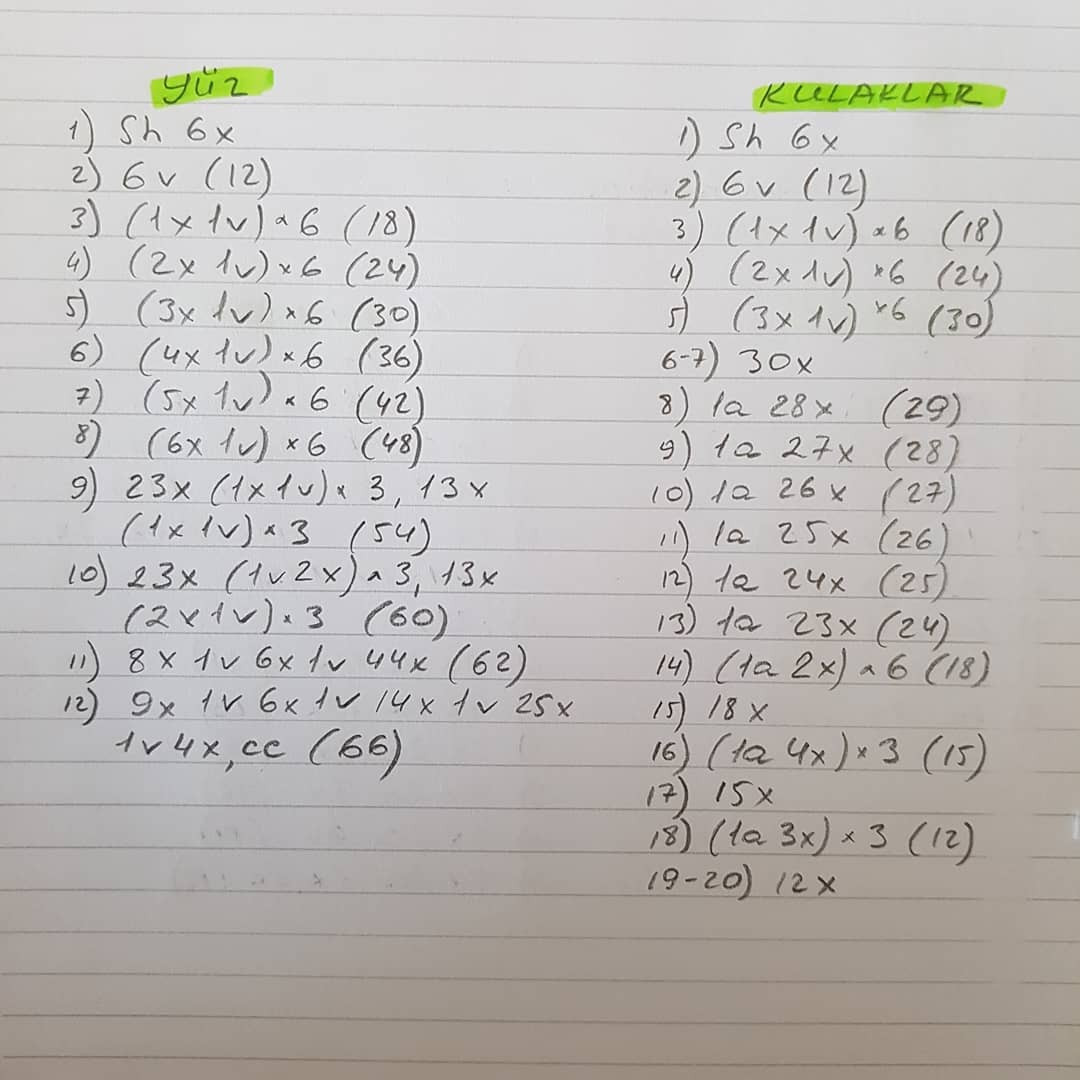 YÜZ
1) Sh 6x
2) 6v (12)
3) (1x 1v) x 6 (18)
4) (2x 1v) x 6 (24)
5) (3x 1v) x 6 (30)
6) (4x 1v) x 6 (36)
7) (5x 1v) x 6 (42)
8) (6x 1v) x 6 (48)
9) 23x (1x 1v) x 3, 13x
(1x 1v) x 3 (54)
10) 23x (1v 2x) x 3, 13x
(2x 1v) x 3 (60)
11) 8x 1v 6x 1v 44x (62)
12) 9x 1v 6x 1v 14x 1v 25x
1v 4x, cc (66)
KULAKLAR
1) Sh 6x
2) 6v (12)
3) (1x 1v) x 6 (18)
4) (2x 1v) x 6 (24)
5) (3x 1v) x 6 (30)
6-7) 30x
8) 1a 28x (29)
9) 1a 27x (28)
10) 1a 26x (27)
11) 1a 25x (26)
12) 1a 24x (25)
13) 1a 23x (24)
14) (1a 2x) x 6 (18)
15) 18x
16) (1a 4x) x 3 (15)
17) 15x
18) (1a 3x) x 3 (12)
19-20) 12x